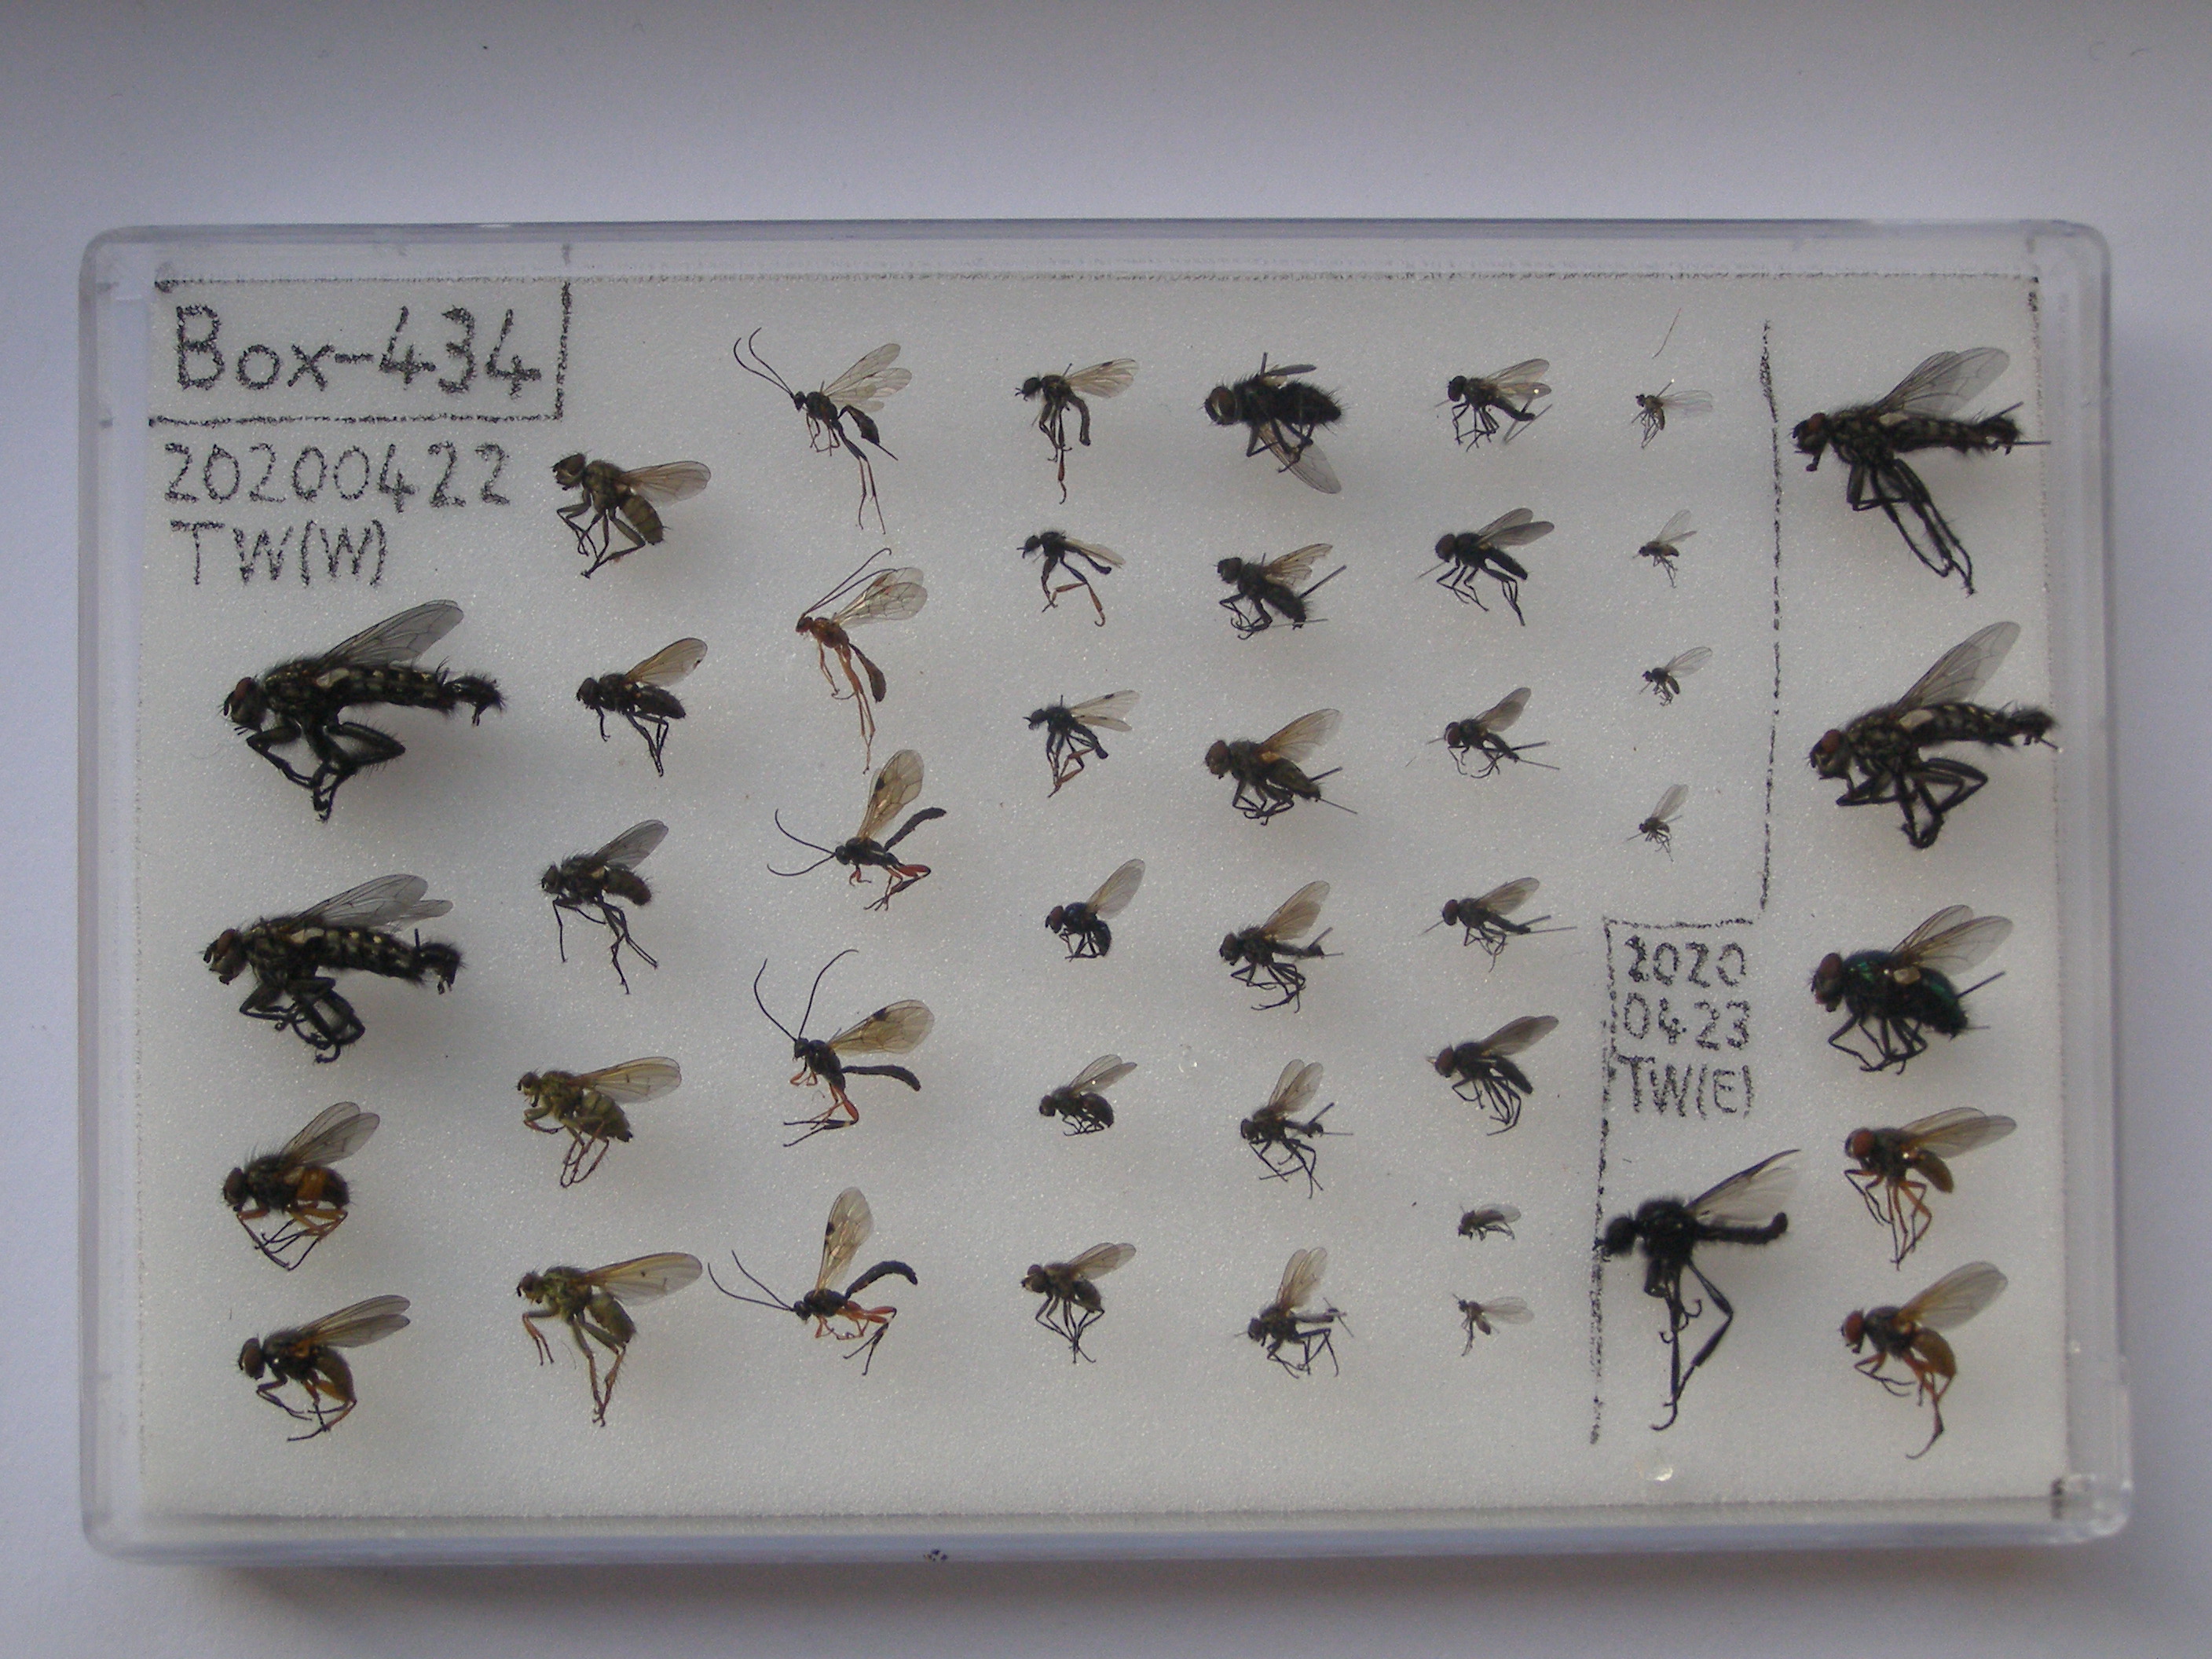 Box-434
20200422
TW(W)
2020
0423
TW(E)